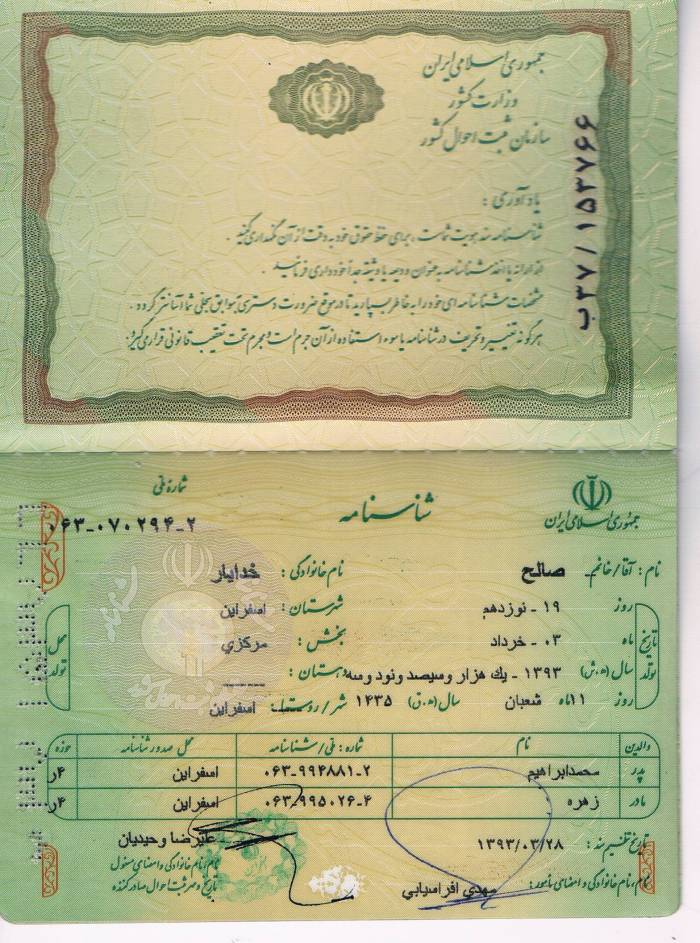 جمهوری اسلامی ایران
وزارت کشور
سازمان ثبت احوال کشور
ب۳۷/۱۵۳۷۶۶
یادآوری :
شناسنامه سند هویت شماست ، برای حفظ حقوق خود به دقت از آن نگهداری کنید .
از ارائه یا اخذ شناسنامه به عنوان ودیعه یا وثیقه جداً خودداری فرمائید .
مشخصات شناسنامه ای خود را به خاطر بسپارید تا در موقع ضرورت دسترسی به سوابق سجلی شما آسانتر گردد .
هرگونه تغییر و تحریف در شناسنامه یا سوء استفاده از آن جرم است و مجرم تحت تعقیب قانونی قرار می گیرد .
جمهوری اسلامی ایران
شناسنامه
شماره ملی
۰۶۳-۰۷۰۲۹۴-۲
نام : آقا/خانم صالح نام خانوادگی : خدایار
تاریخ تولد
روز ۱۹ - نوزدهم
ماه ۰۳ - خرداد
سال (ه.ش) ۱۳۹۳ - یك هزار وسیصد ونود وسه
روز ۱۱ ماه شعبان سال (ه.ق) ۱۴۳۵
محل تولد
شهرستان : اسفراین
بخش : مرکزي
دهستان :
شهر/روستا : اسفراین
والدین نام شماره : ملی/شناسنامه محل صدور شناسنامه حوزه
پدر محمدابراهیم ۰۶۳-۹۹۴۸۸۱-۲ اسفراین ۴ر
مادر زهره ۰۶۳-۹۹۵۰۲۶-۴ اسفراین ۴ر
تاریخ تنظیم سند : ۱۳۹۳/۰۳/۲۸
علیرضا وحیدیان
نام ، نام خانوادگی و امضای مأمور : مهدی افراسیابي
نام ، نام خانوادگی و امضای مسئول
تاریخ و مهر ثبت احوال صادر کننده